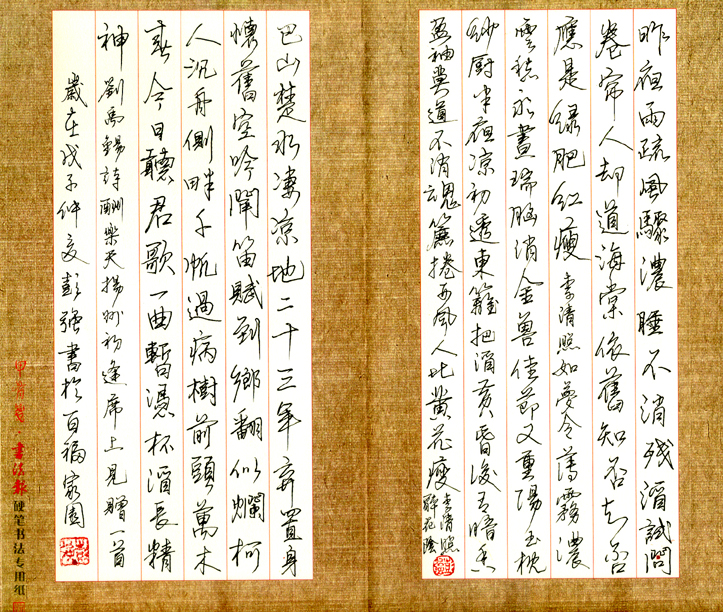 昨夜雨疏風驟濃睡不消殘酒試問
卷帘人却道海棠依舊知否知否
應是绿肥红瘦 李清照如夢令 薄霧濃
雲愁永晝瑞腦消金獸佳節又重陽玉枕
紗厨半夜凉初透東籬把酒黄昏後有暗香
盈袖莫道不消魂簾捲西風人比黄花瘦 李清照
醉花陰
巴山楚水凄凉地二十三年弃置身
懷舊空吟聞笛賦到鄉翻似爛柯
人沉舟側畔千帆過病樹前頭萬木
春今日聽君歌一曲暫憑杯酒長精
神 劉禹錫詩酬樂天揚州初逢席上見贈一首
歲在戊子仲夏彭强書於百福家園
書法報 硬笔书法专用纸